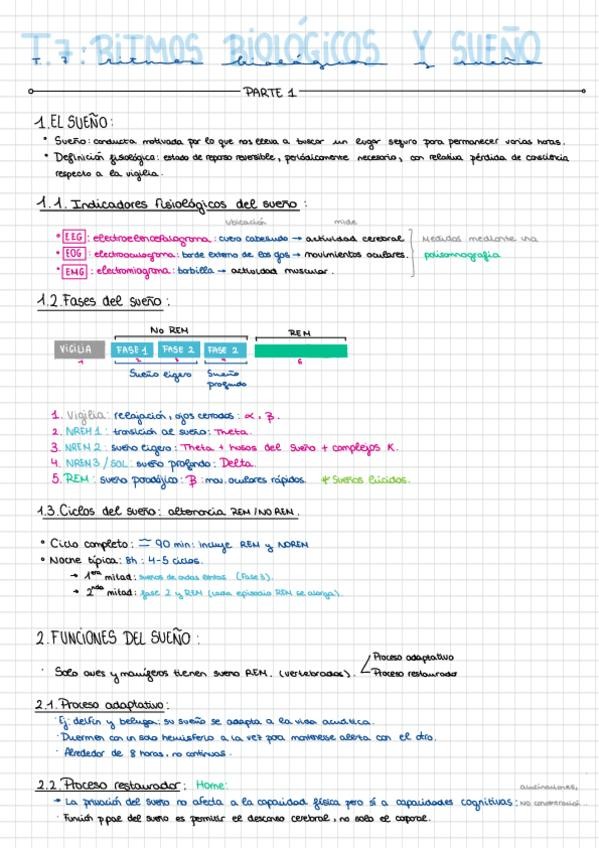 T.7: RITMOS BIOLÓGICOS Y SUEÑO
T. 7 ritmos biológicos y sueño
PARTE 1
1. EL SUEÑO:
• Sueño: conducta motivada por lo que nos lleva a buscar un lugar seguro para permanecer varias horas.
• Definición fisiológica: estado de reposo reversible, periódicamente necesario, con relativa pérdida de consciencia
respecto a la vigilia.
1.1. Indicadores fisiológicos del sueño:
ubicación mide
• EEG: electroencefalograma: cuero cabelludo → actividad cerebral
• EOG: electrooculograma: borde externo de los ojos → movimientos oculares.
• EMG: electromiograma: barbilla → actividad muscular.
Medidos mediante una
polisomnografía
1.2. Fases del sueño:
No REM REM
VIGILIA FASE 1 FASE 2 FASE 2
1 2 3 4 6
Sueño ligero Sueño
profundo
1. Vigilia: relajación, ojos cerrados: α, β.
2. NREM 1: transición al sueño: Theta.
3. NREM 2: sueño ligero: Theta + husos del sueño + complejos K.
4. NREM 3 / SOL: sueño profundo: Delta.
5. REM: sueño paradójico: β: mov. oculares rápidos. * Sueños lúcidos.
1.3. Ciclos del sueño: alternancia REM/NO REM.
• Ciclo completo: ≃ 90 min: incluye REM y NOREM
• Noche típica: 8h: 4-5 ciclos.
→ 1era mitad: sueños de ondas lentas (Fase 3).
→ 2nda mitad: fase 2 y REM (cada episodio REM se alarga).
2. FUNCIONES DEL SUEÑO:
• Solo aves y mamíferos tienen sueño REM. (vertebrados).
Proceso adaptativo
Proceso restaurador
2.1. Proceso adaptativo:
• Ej: delfín y beluga: su sueño se adapta a la vida acuática.
• Duermen con un solo hemisferio a la vez para mantenerse alerta con el otro.
• Alrededor de 8 horas, no continuas.
2.2. Proceso restaurador: Horne:
alucinaciones,
→ La privación del sueño no afecta a la capacidad física pero sí a capacidades cognitivas: no concentración...
• Función ppal del sueño es permitir el descanso cerebral, no solo el corporal.